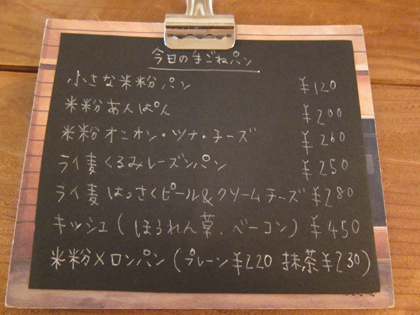 今日のまごねパン
小さな米粉パン ¥120
米粉あんぱん ¥200
米粉オニオン・ツナ・チーズ ¥260
ライ麦くるみレーズンパン ¥250
ライ麦はっさくピール&クリームチーズ ¥280
キッシュ(ほうれん草.ベーコン) ¥450
米粉メロンパン(プレーン¥220 抹茶¥230)